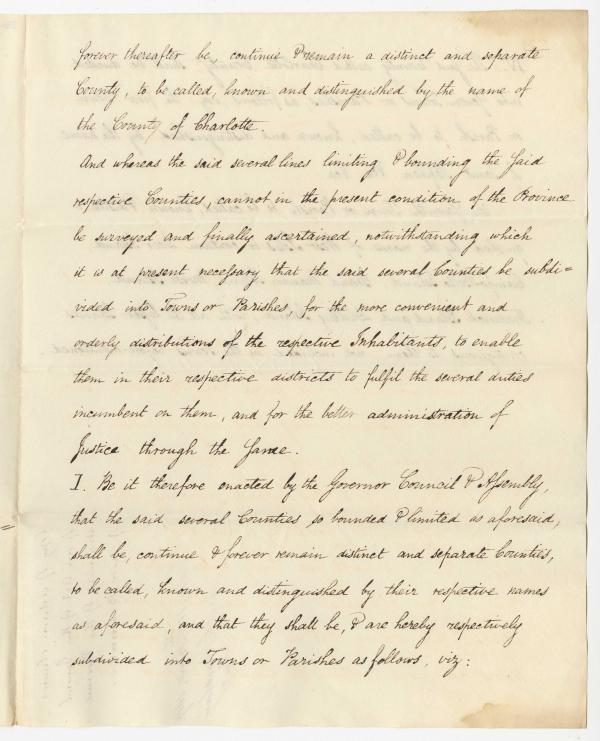 forever thereafter be, continue & remain a distinct and separate
County, to be called, known and distinguished by the name of
the County of Charlotte.
And whereas the said several lines limiting & bounding the said
respective Counties, cannot in the present condition of the Province
be surveyed and finally ascertained, notwithstanding which
it is at present necessary that the said several Counties be subdi=
vided into Towns or Parishes, for the more convenient and
orderly distributions of the respective Inhabitants, to enable
them in their respective districts to fulfil the several duties
incumbent on them, and for the better administration of
Justice through the same.
I. Be it therefore enacted by the Governor Council & Assembly,
that the said several Counties, so bounded & limited as aforesaid,
shall be, continue & forever remain distinct and separate Counties,
to be called, known and distinguished by their respective names
as aforesaid, and that they shall be, & are hereby respectively
subdivided into Towns or Parishes as follows, viz: